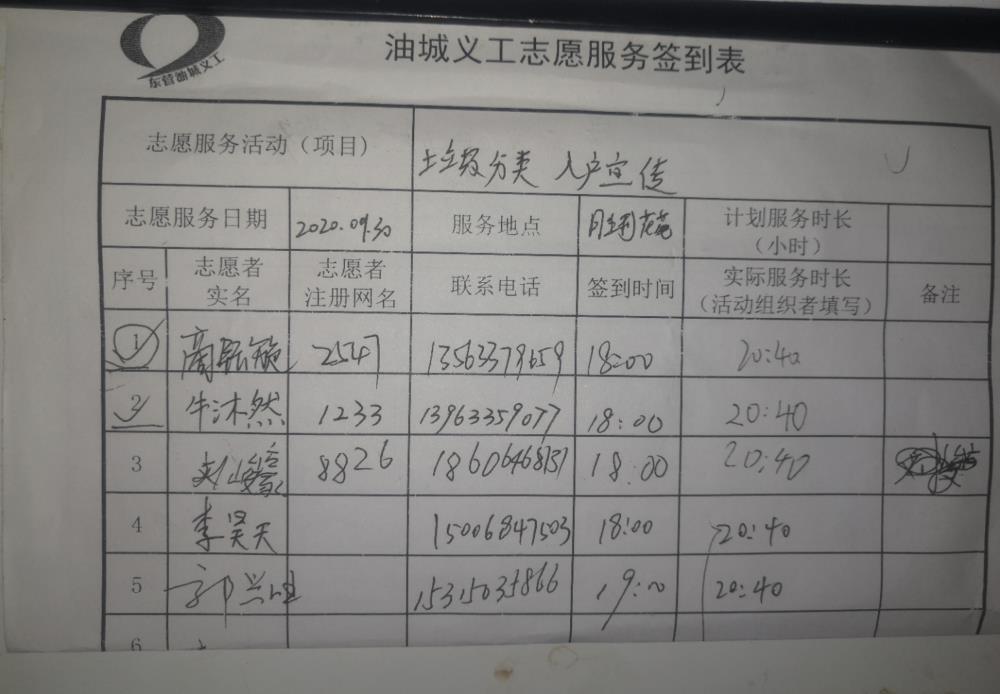 东营油城义工
油城义工志愿服务签到表
志愿服务活动（项目） 垃圾分类 入户宣传
志愿服务日期 2020.09.30 服务地点 计划服务时长（小时）
序号 志愿者实名 志愿者注册网名 联系电话 签到时间 实际服务时长（活动组织者填写） 备注
1 2547 13563379659 18:00 20:40
2 牛沐然 1233 13963359077 18:00 20:40
3 8826 18606468151 18:00 20:40
4 李昊天 15006847503 18:00 20:40
5 郭兴旺 15315035866 19:00 20:40
6